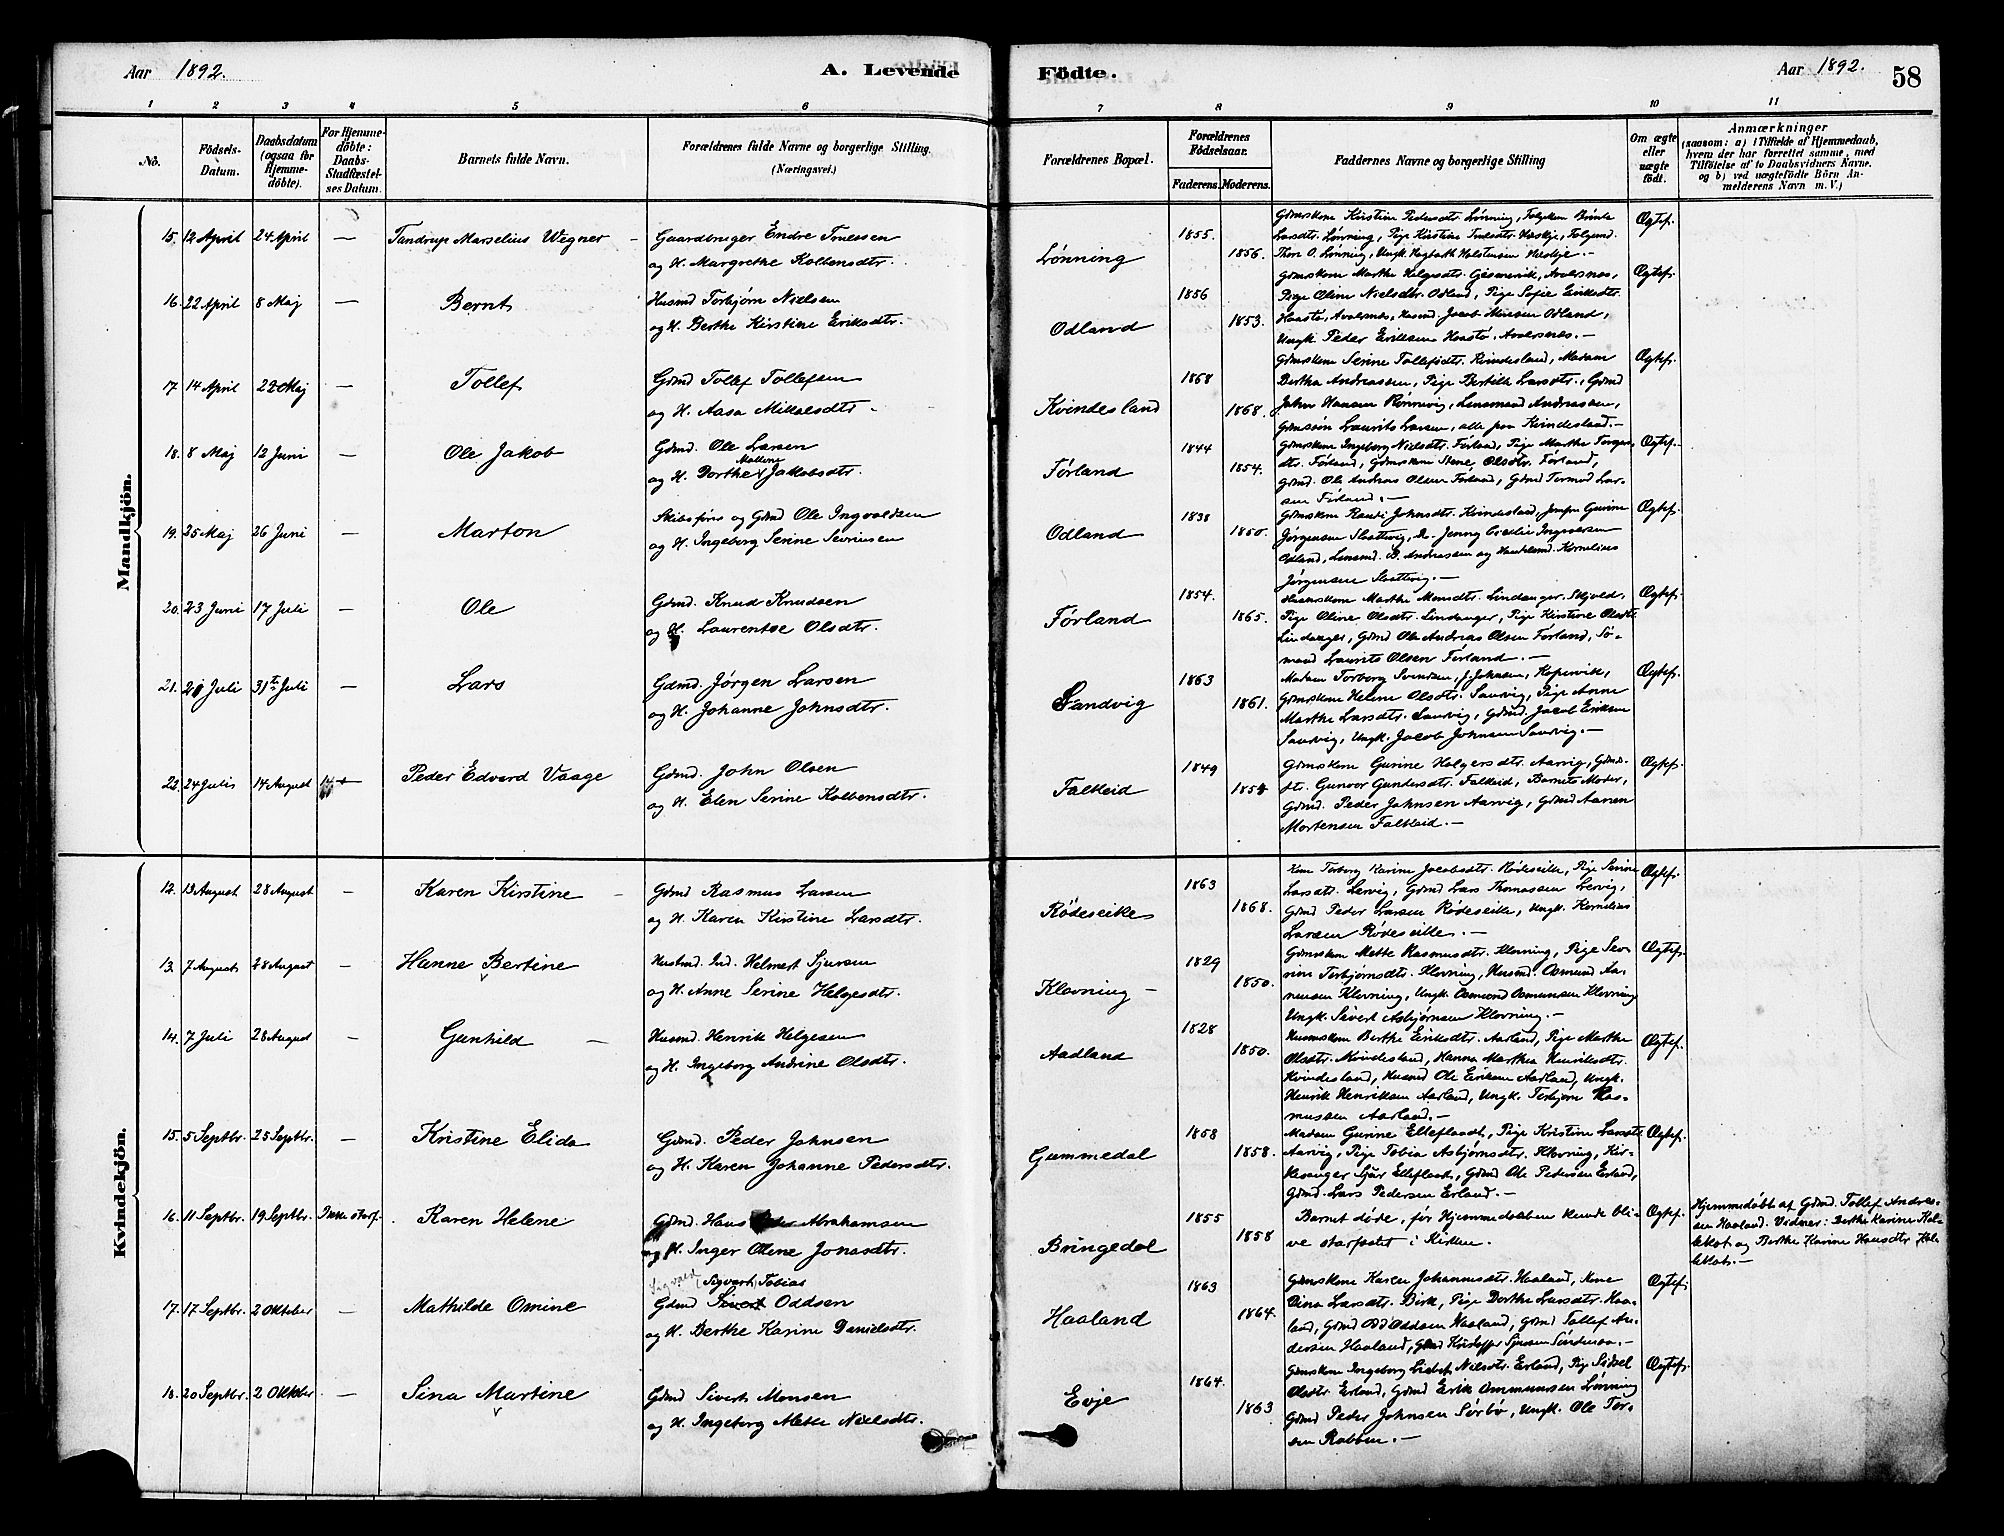 Aar 1892.
A. Levende
Födte.
Aar 1892.
58
1 2 3 4 5 6 7 8 9 10 11
No.
Födsels-
Datum.
Daabsdatum
(ogsaa for
Hjemme-
döbte).
For Hjemme-
döbte:
Daabs-
Stadfæstel-
ses Datum.
Barnets fulde Navn.
Forældrenes fulde Navne og borgerlige Stilling.
(Næringsvei.)
Forældrenes Bopæl.
Forældrenes
Födselsaar.
Faderens. Moderens.
Faddernes Navne og borgerlige Stilling
Om ægte
eller
uægte
födt.
Anmærkninger
(saasom: a) i Tilfælde af Hjemmedaab,
hvem der har forrettet samme, med
Tilföielse af to Daabsvidners Navne.
og b) ved uægtefödte Börn An-
melderens Navn m. V.)
Mandkjön.
15. 12 April 24 April — Tandrup Marselius Wegner — Gaardbruger Endre Tønessen
og H. Margrethe Kolbensdtr.
Lønning
1855.
1856.
Gdmskone Kirstine Pedersdt. Lønning,
Larsdtr. Lønning, Pige Kirstine
Thore O. Lønning, Ungk.
Ægtef.
16. 22 April 8 Maj — Bernt
Husmd Torbjørn Nielsen
og H. Berthe Kirstine Eriksdtr.
Odland
1856
1853.
Gdmskone Marthe Helgesdt. Gismervik, Avalsnes,
Pige Oline Nielsdtr. Odland, Pige Sofie Eriksdt.
Haastø, Avalsnes, Husmd. Jacob Odland,
Ungk. Peder Eriksen Haastø, Avalsnes. —
Ægtef.
17. 14 April 22 Maj — Tollef
Gdmd Tollef Tollefsen
og H. Aasa Mikkelsdtr.
Kvindesland
1868
1868.
Gdmskone Serine Tollefsdt. Kvindesland, Madam
Bertha Andreassen, Pige Bertille Larsdt., Gdmd
John Hansen Rønnevig, Lensmand Andreassen,
Gdmsøn Laurits Larsen, alle paa Kvindesland. —
Ægtef.
18. 8 Maj 12 Juni — Ole Jakob
Gdmd. Ole Larsen
Mallene
og H. Dorthe Jakobsdtr.
Førland
1844
1854.
Gdmskone Ingeborg Nielsdt. Førland, Pige Marthe
dtr. Førland, Gdmskone Stene Olsdtr. Førland,
Gdmd. Ole Andreas Olsen Førland, Gdmd Tormod Lar-
sen Førland. —
Ægtef.
19. 25 Maj 26 Juni — Marton
Skibsfører og Gdmd Ole Ingvaldsen
og H. Ingeborg Serine Sevrinsen
Odland
1838
1850.
Gdmskone Randi Johnsdt. Kvindesland, Jomfru Gurine
Jørgensen Slottevig, Do. Jenny Cecilie Ingvarsen
Odland, Lensmd. B. Andreassen og Kornelius
Jørgensen Slottevig. —
Ægtef.
20. 23 Juni 17 Juli — Ole
Gdmd. Knud Knudsen
og H. Laurentse Olsdtr.
Førland
1854.
1865.
Marthe Monsdt. Lindanger, Skjold,
Pige Oline Olsdt. Lindanger, Pige Kirstine Olsdt
Lindanger, Gdmd Ole Andreas Olsen Førland, Sø-
mand Laurits Olsen Førland. —
Ægtef.
21. 21 Juli 31te Juli — Lars
Gdmd. Jørgen Larsen
og H. Johanne Johnsdtr.
Sandvig
1863
1861.
Madam Torborg Svendsen, Kopervik,
Gdmskone Helene Olsdt. Sandvig, Pige Anne
Marthe Larsdtr. Sandvig, Gdmd. Jacob Eriksen
Sandvig, Ungk. Jacob Johnsen Sandvig. —
Ægtef.
22. 24 Juli 14 August — Peder Edvard Vaage
Gdmd. John Olsen
og H. Elen Serine Kolbensdtr.
Falkeid
1849
Gdmskone Gurine Holgersdt. Aarvig, Gdmd-
dt. Gunvor Gundersdt. Falkeid, Barnets Moder,
Gdmd. Peder Johnsen Aarvig, Gdmd Aanen
Mortensen Falkeid. —
Ægtef.
Kvindekjön.
12. 13 August 28 August — Karen Kirstine —
Gdmd Rasmus Larsen
og H. Karen Kirstine Larsdtr.
Rødeseike
1863
1868.
Torborg Karine Jacobsdt. Rødeseike, Pige Serine
Larsdt. Lervig, Gdmd Lars Thomassen Lervig,
Gdmd Peder Larsen Rødeseike, Ungk. Kornelius
Larsen Rødeseike. —
Ægtef.
13. 7 August 28 August — Hanne Bertine
Husmd. Ind. Helmert Sjursen
og H. Anne Serine Helgesdtr.
Klovning —
1829
1850.
Gdmskone Mette Rasmusdt. Klovning, Pige Sev-
rine Torbjørnsdt. Klovning, Husmd. Osmund Aa-
nensen Klovning, Ungk. Osmund Osmunsen Klovning
Ungk. Sivert Asbjørnsen Klovning. —
Ægtef.
14. 7 Juli 28 August — Gunhild —
Husmd. Henrik Helgesen
og H. Ingeborg Andrine Olsdtr.
Aadland
1828
1850.
Husmskone Berthe Eriksdt. Aarland, Pige Marthe
Olsdt. Kvindesland, Hanna Marthea Henriksdt.
Kvindesland, Husmd Ole Eriksen Aarland, Ungk.
Henrik Henriksen Aarland, Ungk. Torbjørn Ras-
mussen Aarland. —
Ægtef.
15. 5 Septbr. 25 Septbr. — Kristine Elida
Gdmd. Peder Johnsen
og H. Karen Johanne Pedersdtr.
Gummedal
1858
1858.
Madam Gurine Elleflaadt, Pige Kristine Larsdt
Aarvig, Pige Tobia Asbjørnsdt. Klovning, Kir-
kesanger Sjur Elleflaadt, Gdmd Ole Pedersen Erland,
Gdmd. Lars Pedersen Erland. —
Ægtef.
16. 11 Septbr. 19 Septbr. Ikke stadf. Karen Helene
Gdmd. Hans Abrahamsen
og H. Inger Oline Jonasdtr.
Bringedal
1855
1858
Barnet døde, før Hjemmedaaben kunde bli-
ve stadfæstet i Kirken.
Ægtef.
Hjemmedøbt af Gdmd. Tollef Andrea-
sen Haaland. Vidner: Berthe Karine
og Berthe Karine Hansdtr
17. 17 Septbr. 2 Oktober — Mathilde Omine
Sigvald Sigvert Tobias
Gdmd Sivert Oddsen
og H. Berthe Karine Danielsdtr.
Haaland
1863
1864.
Gdmskone Karen Johannesdt. Haaland, Kone
Dina Larsdt. Birk, Pige Dorthe Larsdt. Haa-
land, Gdmd Odd Oddsen Haaland, Gdmd Tollef An-
dersen Haaland, Gdmd Kristoffer Sjursen
Ægtef.
18. 20 Septbr. 2 Oktober — Sina Martine
Gdmd Sivert Monsen
og H. Ingeborg Mette Nielsdtr.
Evje
1864.
1863
Gdmskone Ingeborg Lisbet Nielsdt. Erland, Pige Sidsel
Olsdtr. Erland, Gdmd Erik Ommundsen Lønning
Gdmd Peder Johnsen Sørbø, Ungk. Ole Tor-
sen Rabben. —
Ægtef.